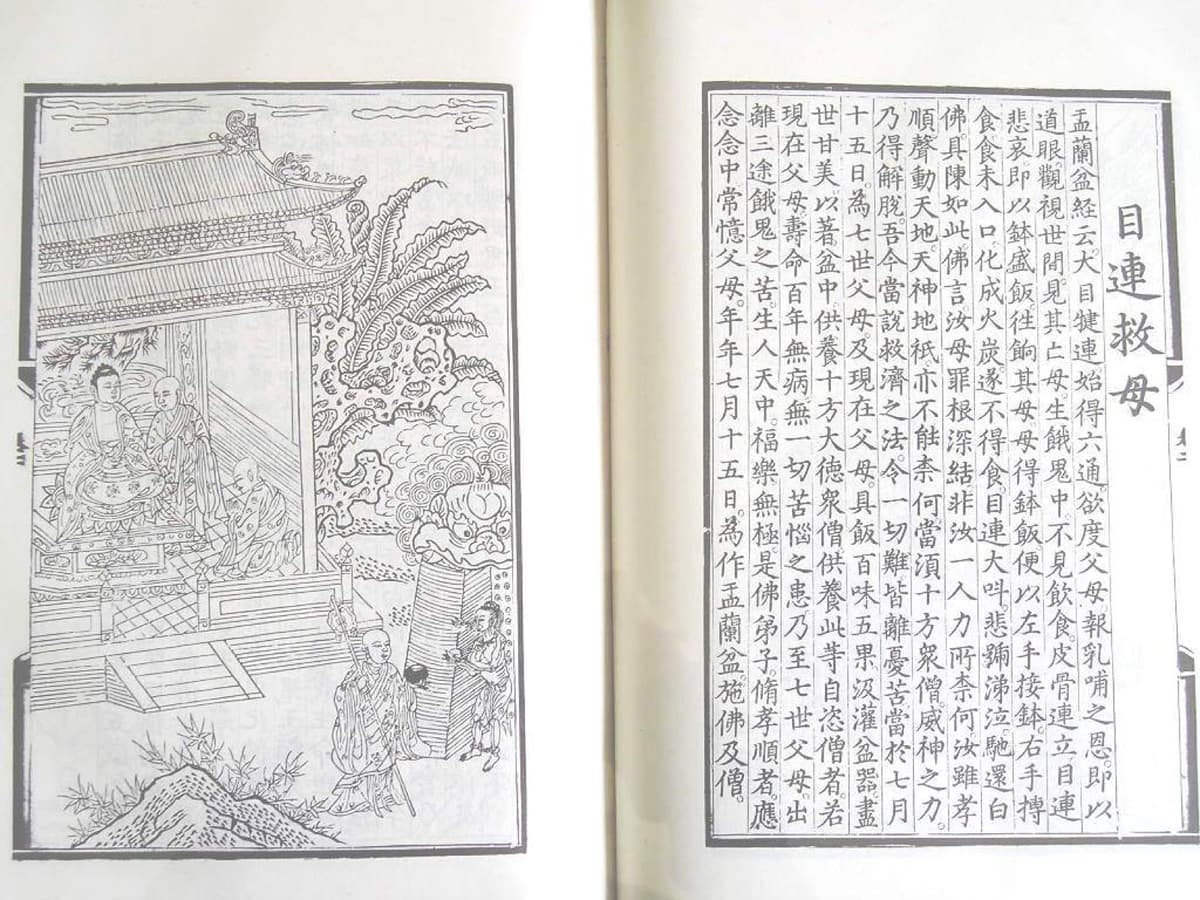 目連救母
盂蘭盆經云。大目犍連始得六通。欲度父母。報乳哺之恩。即以
道眼。觀視世間。見其亡母。生餓鬼中。不見飲食。皮骨連立。目連
悲哀。即以鉢盛飯。徃餉其母。母得鉢飯。便以左手接鉢。右手摶
食。食未入口。化成火炭。遂不得食。目連大呌。悲號涕泣。馳還白
佛。具陳如此。佛言汝母罪根深結。非汝一人力所柰何。汝雖孝
順。聲動天地。天神地祇。亦不能柰何。當湏十方衆僧。威神之力。
乃得解脫。吾今當說救濟之法。令一切難皆離憂苦。當於七月
十五日。為七世父母。及現在父母。具飯百味五果。汲灌盆器。盡
世甘美。以著盆中。供養十方大德衆僧。供養此等自恣僧者。若
現在父母。壽命百年無病。無一切苦惱之患。乃至七世父母。出
離三途餓鬼之苦。生人天中。福樂無極。是佛弟子。脩孝順者。應
念念中常憶父母。年年七月十五日。為作盂蘭盆。施佛及僧。